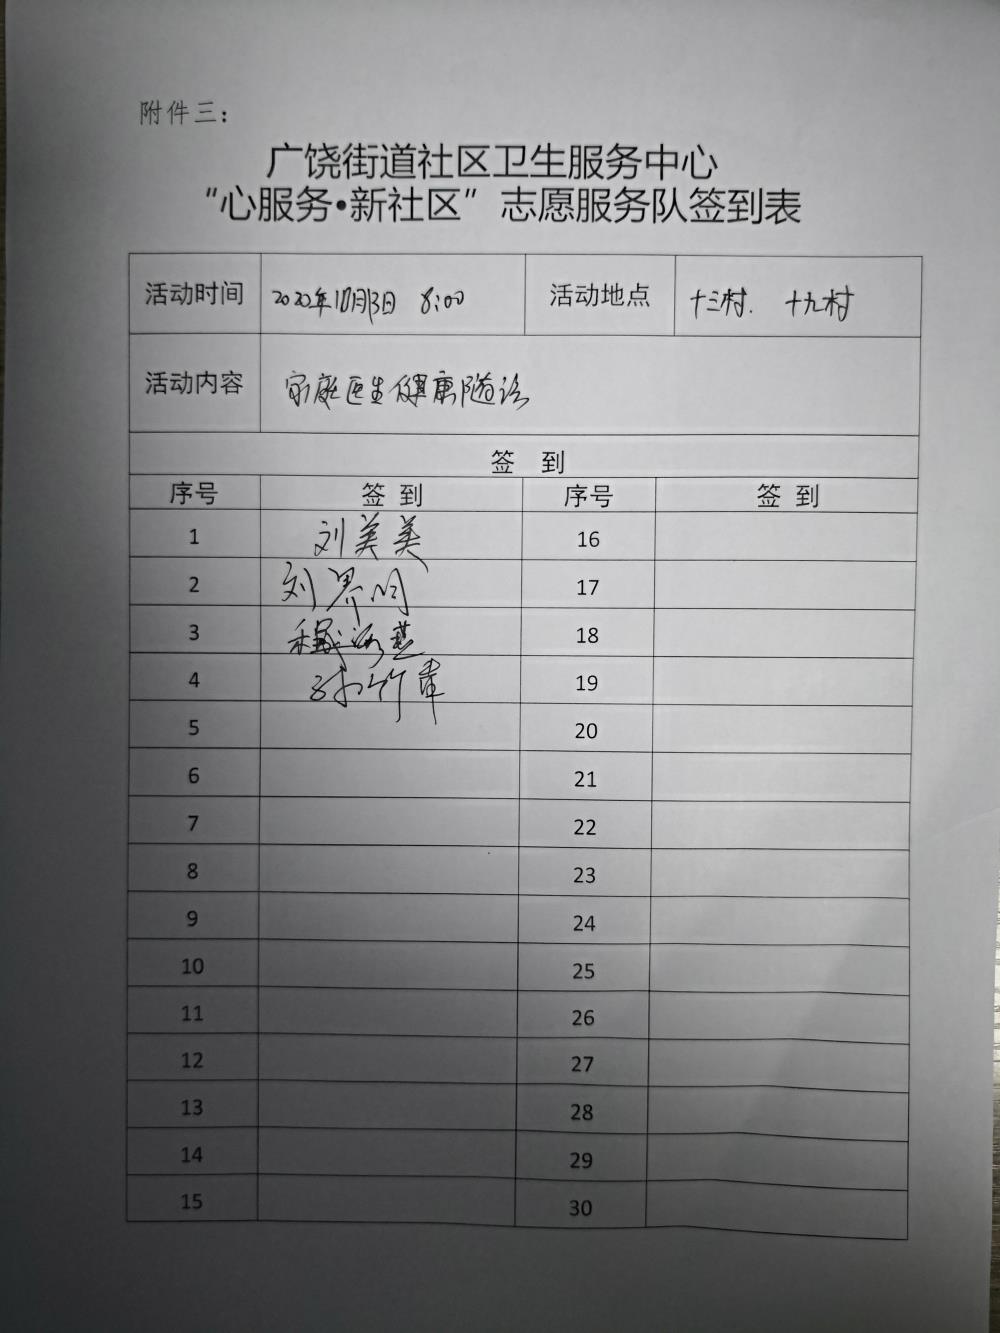 附件三：
广饶街道社区卫生服务中心
“心服务•新社区”志愿服务队签到表
活动时间 2020年10月13日 8:00 活动地点 十三村. 十九村
活动内容 家庭医生健康随访
签 到
序号 签到 序号 签到
1 刘美美 16
2 刘 17
3 18
4 孙竹青 19
5 20
6 21
7 22
8 23
9 24
10 25
11 26
12 27
13 28
14 29
15 30